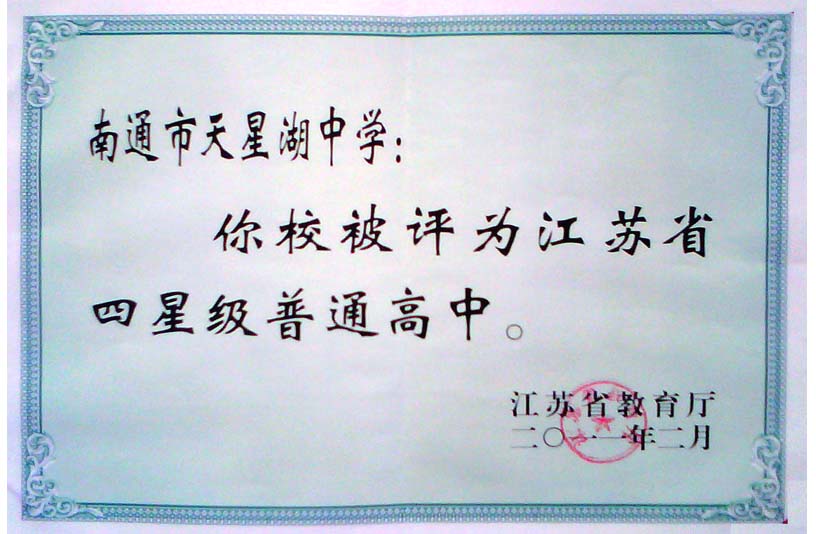 南通市天星湖中学：
你校被评为江苏省
四星级普通高中。
江苏省教育厅
二〇一一年二月